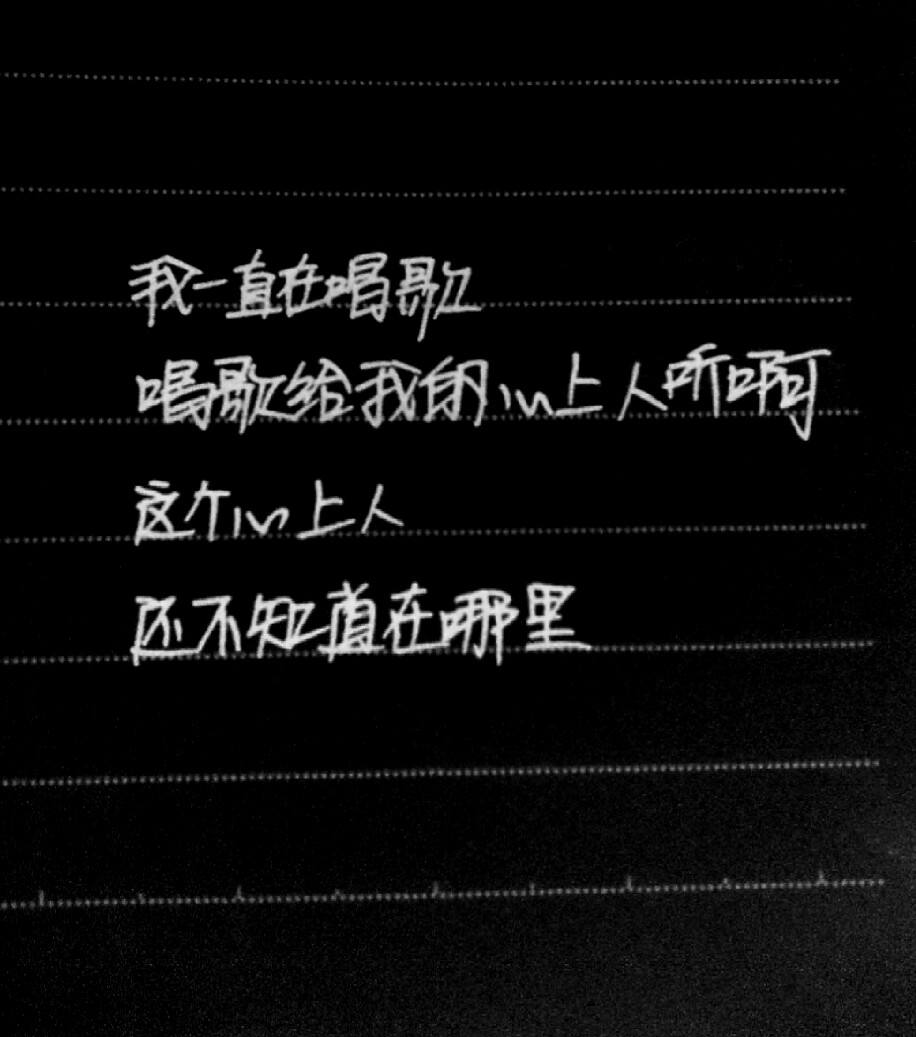 我一直在唱歌
唱歌给我的心上人听啊
这个心上人
还不知道在哪里